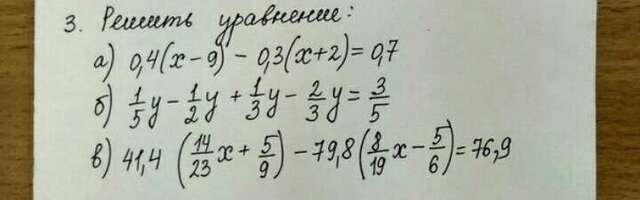 3. Решить уравнение:
а) 0,4(x-9) - 0,3(x+2)=0,7
б) 1/5 y - 1/2 y + 1/3 y - 2/3 y = 3/5
в) 41,4 (14/23 x + 5/9) - 79,8(8/19 x - 5/6)=76,9